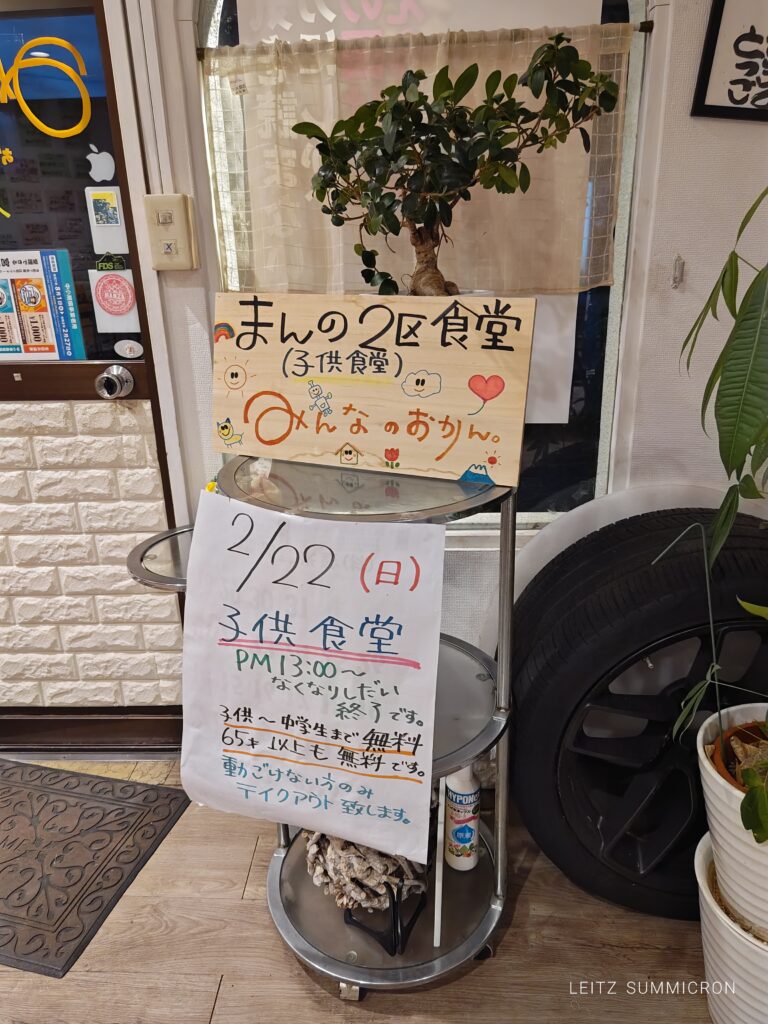 まんの2区食堂
(子供食堂)
みんなのおかん。
2/22(日)
子供食堂
PM 13:00〜
なくなりしだい
終了です。
子供〜中学生まで無料
65才以上も無料です。
動ごけない方のみ
テイクアウト致します。
HYPONeX
FDS
¥1,000
LEITZ SUMMICRON